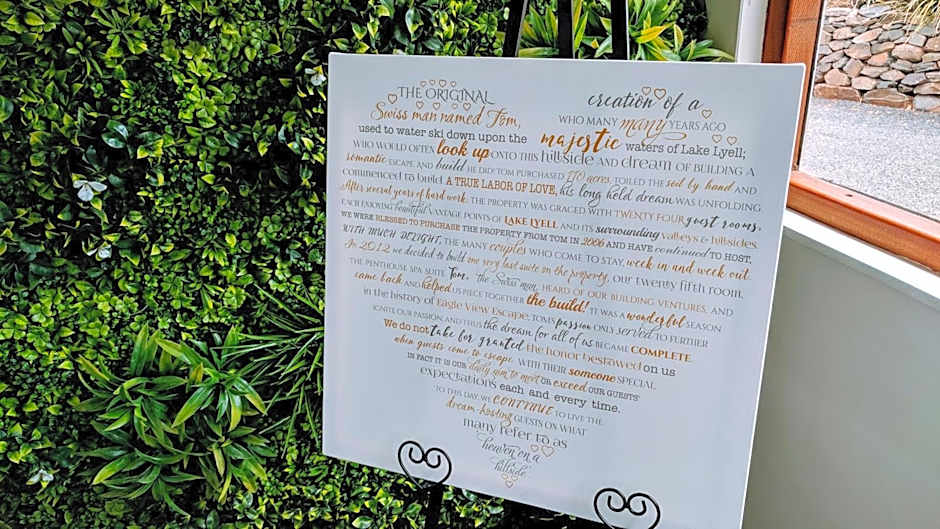 THE ORIGINAL creation of a
Swiss man named Tom, WHO MANY many YEARS AGO
used to water ski down upon the majestic waters of Lake Lyell;
WHO WOULD OFTEN look up ONTO THIS hillside AND dream OF BUILDING A
romantic ESCAPE AND build HE DID! TOM PURCHASED 170 acres, TOILED THE soil by hand AND
commenced to build A TRUE LABOR OF LOVE, his long held dream WAS UNFOLDING
After several years of hard work, THE PROPERTY WAS GRACED WITH TWENTY FOUR guest rooms,
EACH ENJOYING beautiful VANTAGE POINTS OF LAKE LYELL AND ITS surrounding valleys & hillsides.
WE WERE BLESSED TO PURCHASE THE PROPERTY FROM TOM IN 2006 AND HAVE continued TO HOST,
WITH MUCH DELIGHT, THE MANY couples WHO COME TO STAY, week in and week out.
In 2012 we decided to build one very last suite on the property, OUR TWENTY FIFTH ROOM,
THE PENTHOUSE SPA SUITE. Tom, "the Swiss man, HEARD OF OUR BUILDING VENTURES, AND
came back AND helped US PIECE TOGETHER the build! IT WAS A wonderful SEASON
in the history of Eagle View Escape; TOM'S passion ONLY served TO FURTHER
IGNITE OUR PASSION, AND THUS the dream for all of us BECAME COMPLETE.
We do not take for granted the honor bestowed on us
when guests come to escape WITH THEIR someone SPECIAL.
IN FACT IT IS OUR daily aim to meet OR exceed OUR GUESTS'
expectations each and every time.
TO THIS DAY, WE CONTINUE TO LIVE THE
dream hosting GUESTS ON WHAT
many refer to as
heaven on a
hillside